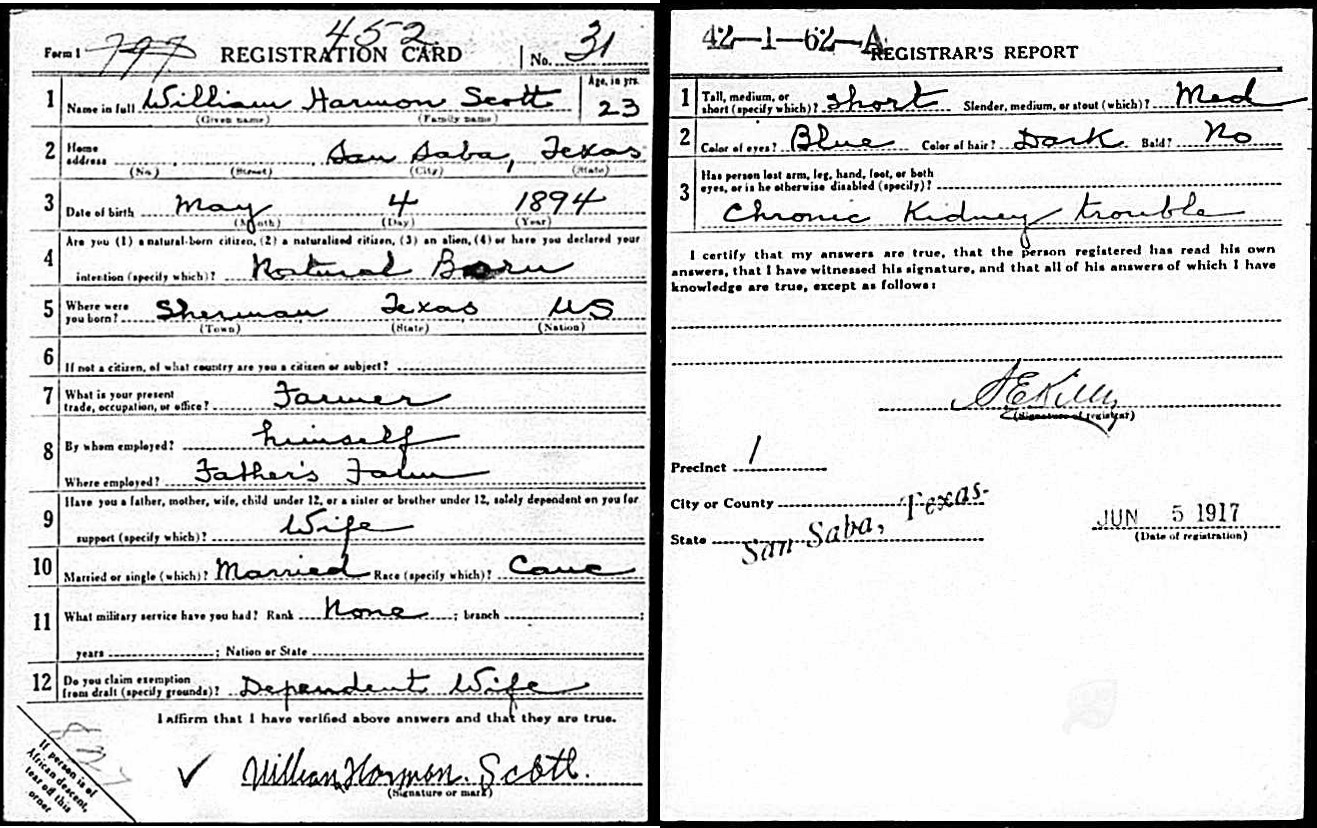 Form 1 799 REGISTRATION CARD 452 No. 31
1 Name in full William Harmon Scott Age, in yrs. 23
(Given name) (Family name)
2 Home address San Saba, Texas
(No.) (Street) (City) (State)
3 Date of birth May 4 1894
(Month) (Day) (Year)
4 Are you (1) a natural-born citizen, (2) a naturalized citizen, (3) an alien, (4) or have you declared your
intention (specify which)? Natural Born
5 Where were you born? Sherman Texas US
(Town) (State) (Nation)
6 If not a citizen, of what country are you a citizen or subject?
7 What is your present trade, occupation, or office? Farmer
8 By whom employed? himself
Where employed? Father's Farm
9 Have you a father, mother, wife, child under 12, or a sister or brother under 12, solely dependent on you for
support (specify which)? Wife
10 Married or single (which)? Married Race (specify which)? Cauc
11 What military service have you had? Rank None ; branch ;
years ; Nation or State
12 Do you claim exemption from draft (specify grounds)? Dependent Wife
I affirm that I have verified above answers and that they are true.
William Harmon. Scott.
(Signature or mark)
If person is of
African descent,
tear off this
corner
42-1-62-A REGISTRAR'S REPORT
1 Tall, medium, or short (specify which)? short Slender, medium, or stout (which)? Med
2 Color of eyes? Blue Color of hair? Dark Bald? No
3 Has person lost arm, leg, hand, foot, or both
eyes, or is he otherwise disabled (specify)?
Chronic Kidney trouble
I certify that my answers are true, that the person registered has read his own
answers, that I have witnessed his signature, and that all of his answers of which I have
knowledge are true, except as follows:
(Signature of registrar)
Precinct 1
City or County
State San Saba, Texas.
JUN 5 1917
(Date of registration)